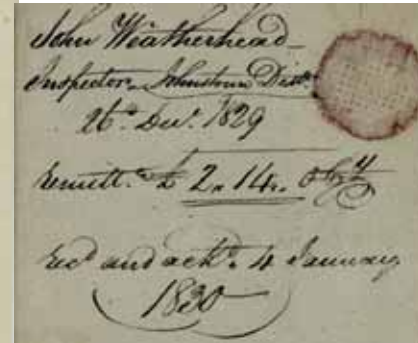 John Weatherhead
Inspector Johnstown Dist.
26th Decr. 1829
remitt.ce £ 2.14.
Recd and ackd. 4 January
1830